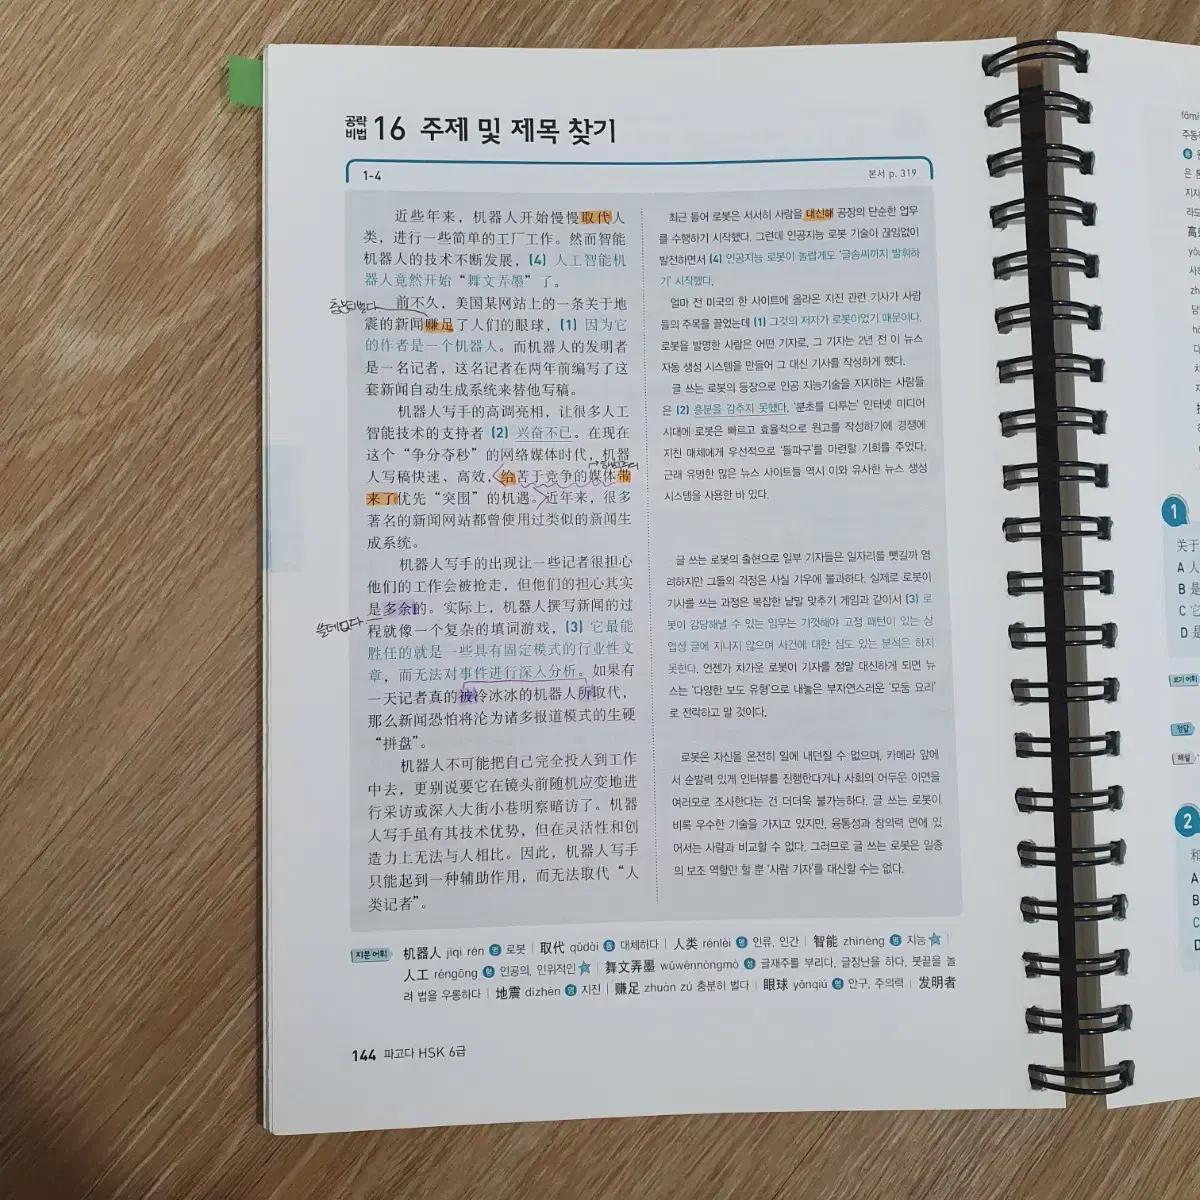 공략
비법 16 주제 및 제목 찾기
1-4
본서 p. 319
近些年来，机器人开始慢慢取代人
类，进行一些简单的工厂工作。然而智能
机器人的技术不断发展，(4) 人工智能机
器人竟然开始“舞文弄墨”了。
충분히 벌다
前不久，美国某网站上的一条关于地
震的新闻赚足了人们的眼球，(1) 因为它
的作者是一个机器人。而机器人的发明者
是一名记者，这名记者在两年前编写了这
套新闻自动生成系统来替他写稿。
机器人写手的高调亮相，让很多人工
智能技术的支持者 (2) 兴奋不已。在现在
这个“争分夺秒”的网络媒体时代，机器
人写稿快速、高效，给苦于竞争的媒体带
来了优先“突围”的机遇。近年来，很多
著名的新闻网站都曾使用过类似的新闻生
成系统。
机器人写手的出现让一些记者很担心
他们的工作会被抢走，但他们的担心其实
是多余的。实际上，机器人撰写新闻的过
쓸데없다
程就像一个复杂的填词游戏，(3) 它最能
胜任的就是一些具有固定模式的行业性文
章，而无法对事件进行深入分析。如果有
一天记者真的被冷冰冰的机器人所取代，
那么新闻恐怕将沦为诸多报道模式的生硬
“拼盘”。
机器人不可能把自己完全投入到工作
中去，更别说要它在镜头前随机应变地进
行采访或深入大街小巷明察暗访了。机器
人写手虽有其技术优势，但在灵活性和创
造力上无法与人相比。因此，机器人写手
只能起到一种辅助作用，而无法取代“人
类记者”。
최근 들어 로봇은 서서히 사람을 대신해 공장의 단순한 업무
를 수행하기 시작했다. 그런데 인공지능 로봇 기술이 끊임없이
발전하면서 (4) 인공지능 로봇이 놀랍게도 ‘글솜씨까지 발휘하
기’ 시작했다.
얼마 전 미국의 한 사이트에 올라온 지진 관련 기사가 사람
들의 주목을 끌었는데 (1) 그것의 저자가 로봇이었기 때문이다.
로봇을 발명한 사람은 어떤 기자로, 그 기자는 2년 전 이 뉴스
자동 생성 시스템을 만들어 그 대신 기사를 작성하게 했다.
글 쓰는 로봇의 등장으로 인공 지능기술을 지지하는 사람들
은 (2) 흥분을 감추지 못했다. ‘분초를 다투는’ 인터넷 미디어
시대에 로봇은 빠르고 효율적으로 원고를 작성하기에 경쟁에
지친 매체에게 우선적으로 ‘돌파구’를 마련할 기회를 주었다.
근래 유명한 많은 뉴스 사이트들 역시 이와 유사한 뉴스 생성
시스템을 사용한 바 있다.
글 쓰는 로봇의 출현으로 일부 기자들은 일자리를 뺏길까 염
려하지만 그들의 걱정은 사실 기우에 불과하다. 실제로 로봇이
기사를 쓰는 과정은 복잡한 낱말 맞추기 게임과 같아서 (3) 로
봇이 감당해낼 수 있는 임무는 기껏해야 고정 패턴이 있는 상
업성 글에 지나지 않으며 사건에 대한 심도 있는 분석은 하지
못한다. 언젠가 차가운 로봇이 기자를 정말 대신하게 되면 뉴
스는 ‘다양한 보도 유형’으로 내놓은 부자연스러운 ‘모둠 요리’
로 전락하고 말 것이다.
로봇은 자신을 온전히 일에 내던질 수 없으며, 카메라 앞에
서 순발력 있게 인터뷰를 진행한다거나 사회의 어두운 이면을
여러모로 조사한다는 건 더더욱 불가능하다. 글 쓰는 로봇이
비록 우수한 기술을 가지고 있지만, 융통성과 창의력 면에 있
어서는 사람과 비교할 수 없다. 그러므로 글 쓰는 로봇은 일종
의 보조 역할만 할 뿐 ‘사람 기자’를 대신할 수는 없다.
지문 어휘 机器人 jīqì rén 명 로봇 | 取代 qǔdài 동 대체하다 | 人类 rénlèi 명 인류, 인간 | 智能 zhìnéng 명 지능 ★ |
人工 réngōng 형 인공의, 인위적인 ★ | 舞文弄墨 wǔwénnòngmò 성 글재주를 부리다, 글장난을 하다, 붓끝을 놀
려 법을 우롱하다 | 地震 dìzhèn 명 지진 | 赚足 zhuàn zú 충분히 벌다 | 眼球 yǎnqiú 명 안구, 주의력 | 发明者
144 파고다 HSK 6급
1
关于
A 人
B 是
C 它
D 是
보기 어휘
정답
해설
2
和
A
B
C
D